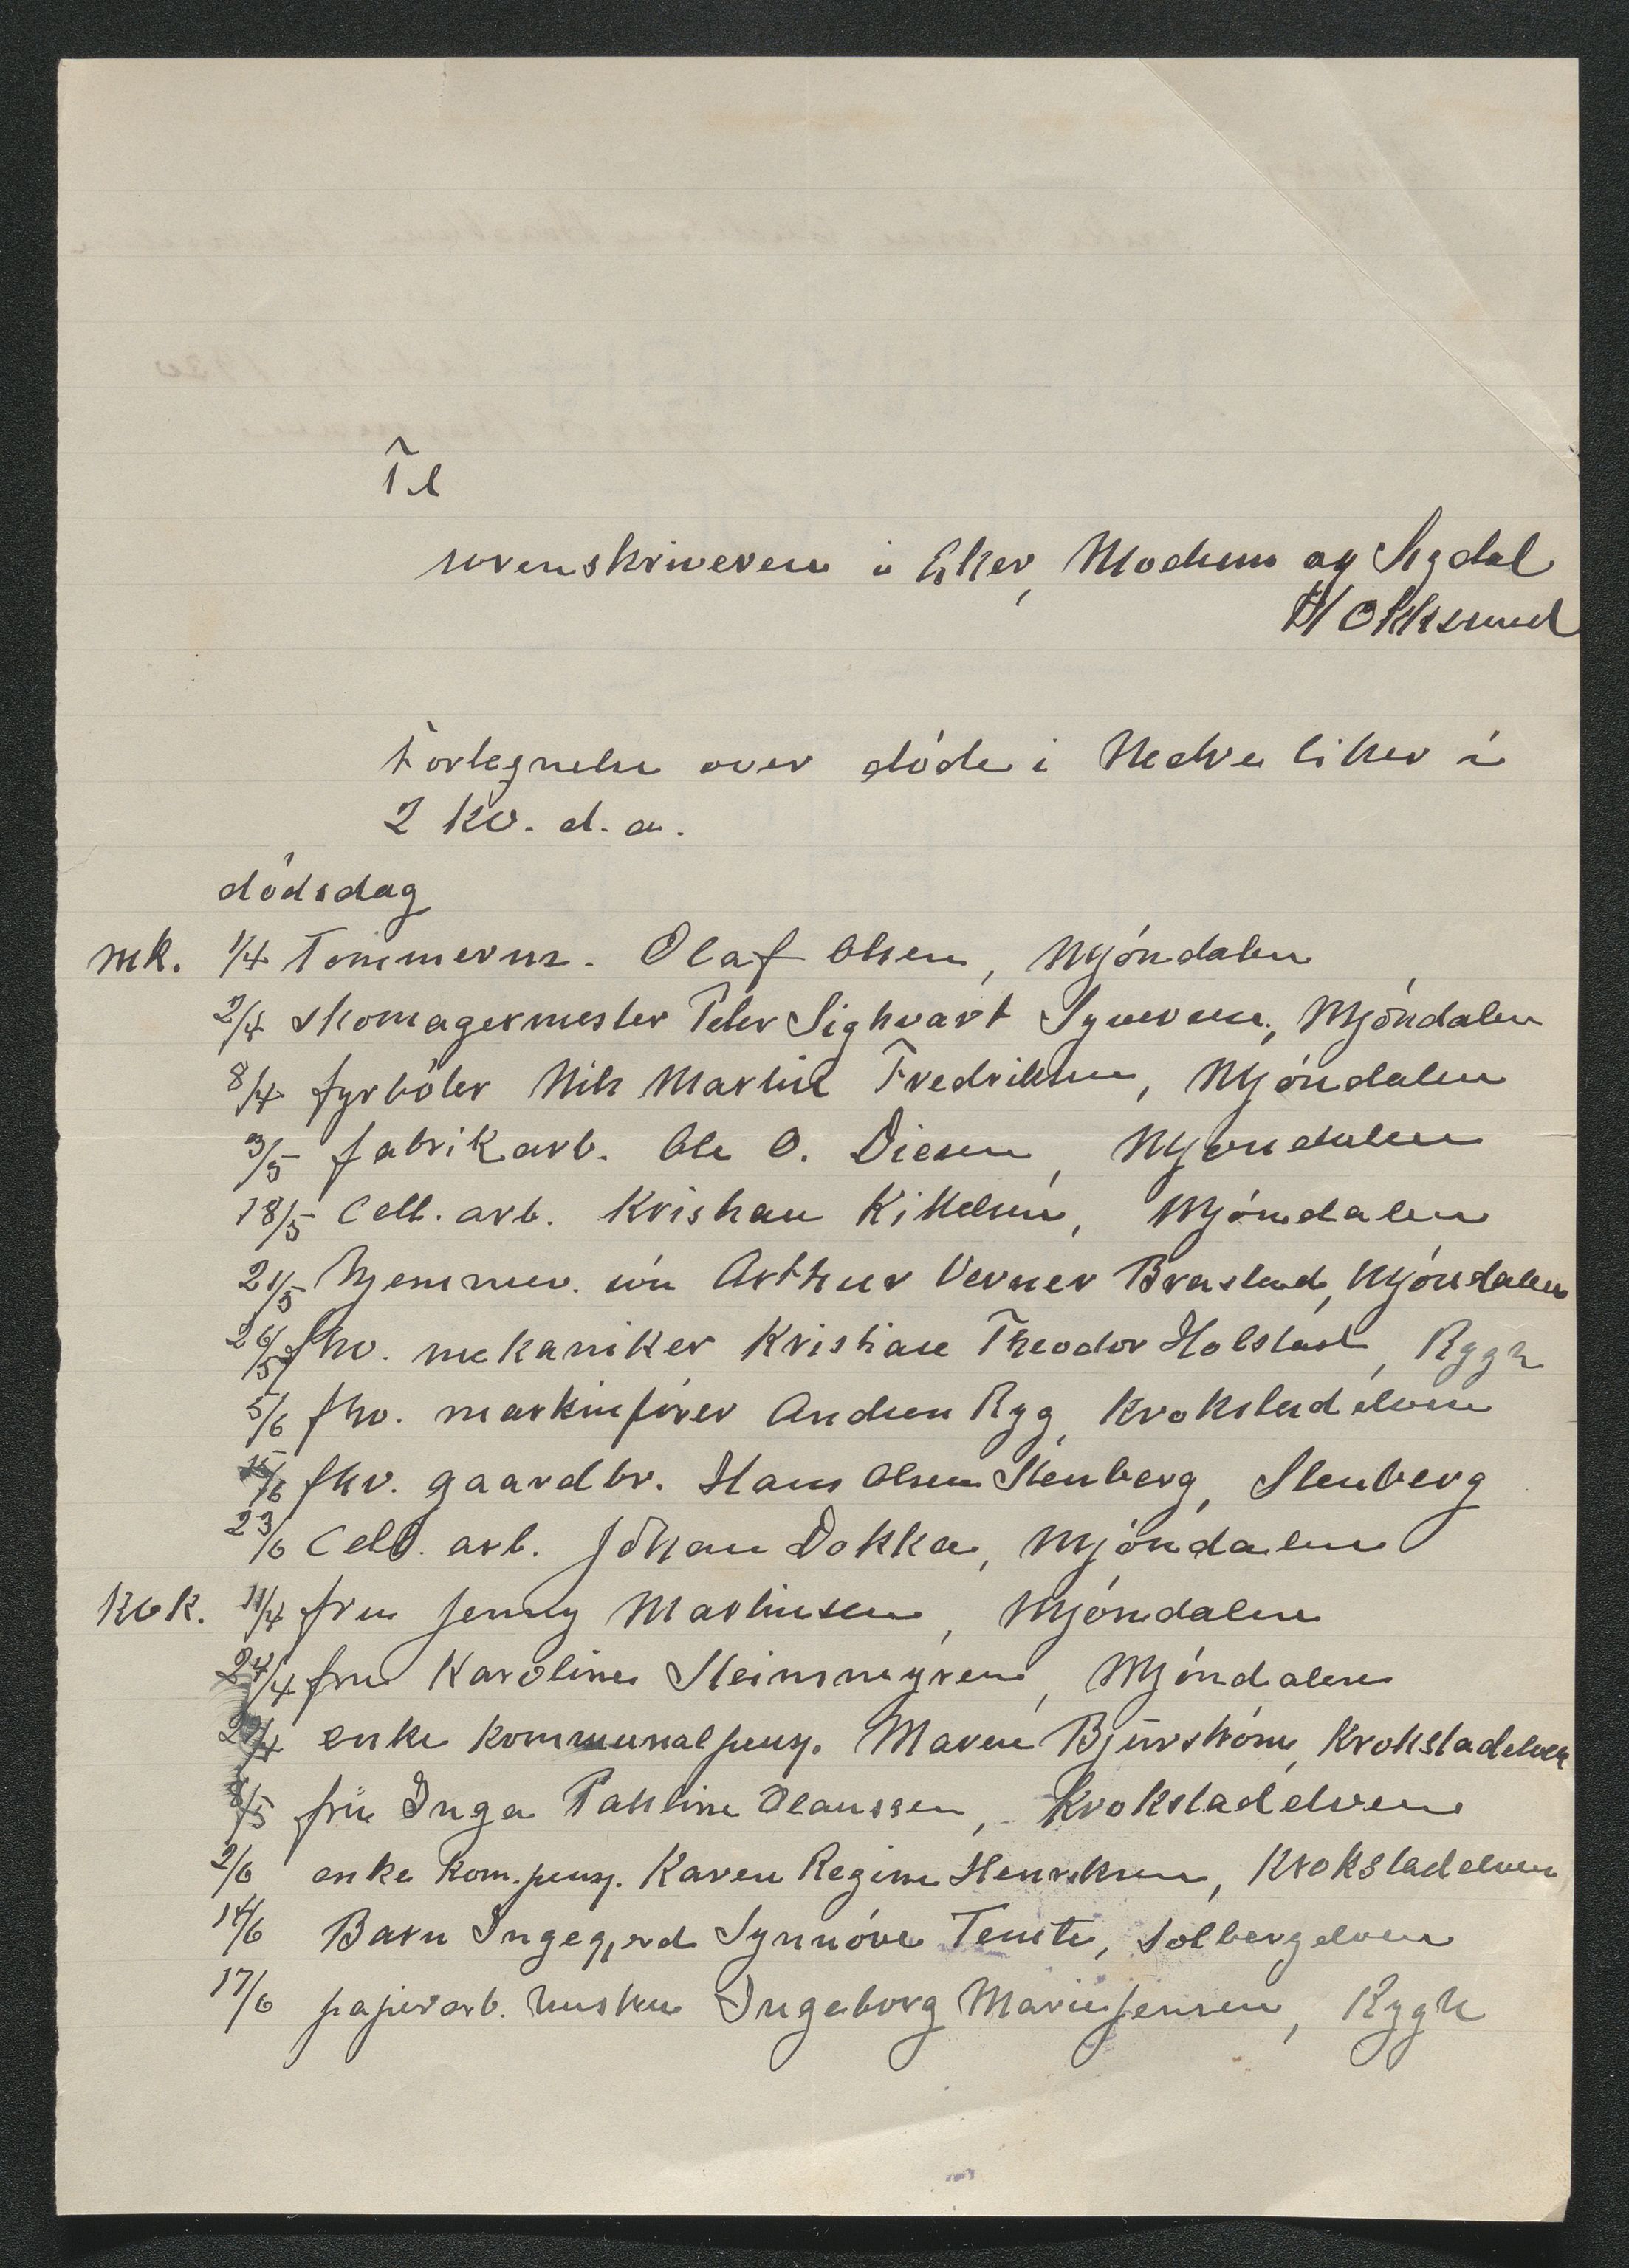 Til
sorenskriveren i Eker, Modum og Sigdal
Hokksund
Fortegnelse over døde i Nedre Eiker i
2 kv. d.a.
dødsdag
mk. 1/4 Tømmerm. Olaf Olsen, Mjøndalen
2/4 skomagermester Peter Sighvart Syversen, Mjøndalen
8/4 fyrbøter Nils Martin Fredriksen, Mjøndalen
3/5 fabrikarb. Ole O. Diesen, Mjøndalen
18/5 Cell. arb. Kristian Kittelsen, Mjøndalen
21/5 hjemmev. søn Arthur Verner Brastad, Mjøndalen
26/5 fhv. mekaniker Kristian Theodor Holstad, Rygh
5/6 fhv. maskinfører Andreas Ryg, Krokstadelven
15/6 fhv. gaardbr. Hans Olsen Stenberg, Stenberg
23/6 Cell. arb. Johan Dokka, Mjøndalen
kvk. 11/4 fru Jenny Martinsen, Mjøndalen
24/4 fru Karoline Steinmyren, Mjøndalen
enke kommunalpens. Maren Bjürstrøm, Krokstadelven
8/5 fru Inga Pauline Olaussen, Krokstadelven
2/6 enke kom.pens. Karen Regine Henriksen, Krokstadelven
14/6 Barn Ingegjerd Synnøve Temte, Solbergelven
17/6 papirarb. hustru Ingeborg Marie Jensen, Rygh